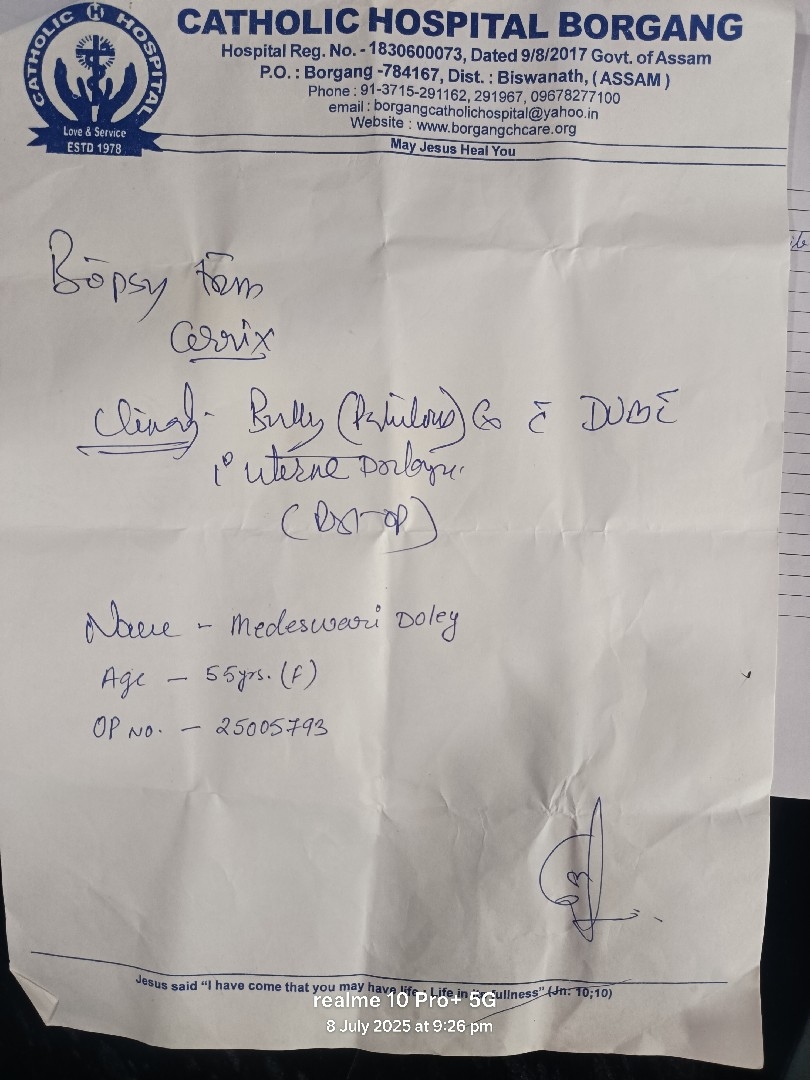 CATHOLIC HOSPITAL
Love & Service
ESTD 1978
CATHOLIC HOSPITAL BORGANG
Hospital Reg. No. - 1830600073, Dated 9/8/2017 Govt. of Assam
P.O. : Borgang -784167, Dist. : Biswanath, ( ASSAM )
Phone : 91-3715-291162, 291967, 09678277100
email : borgangcatholichospital@yahoo.in
Website : www.borgangchcare.org
May Jesus Heal You
Biopsy from
Cervix
Bulky Cx c̄ DUB c̄
1° uterine
Name - Medeswari Doley
Age - 55yrs. (F)
OP No. - 25005793
Jesus said "I have come that you may have life, Life in its fullness" (Jn. 10;10)
realme 10 Pro+ 5G
8 July 2025 at 9:26 pm